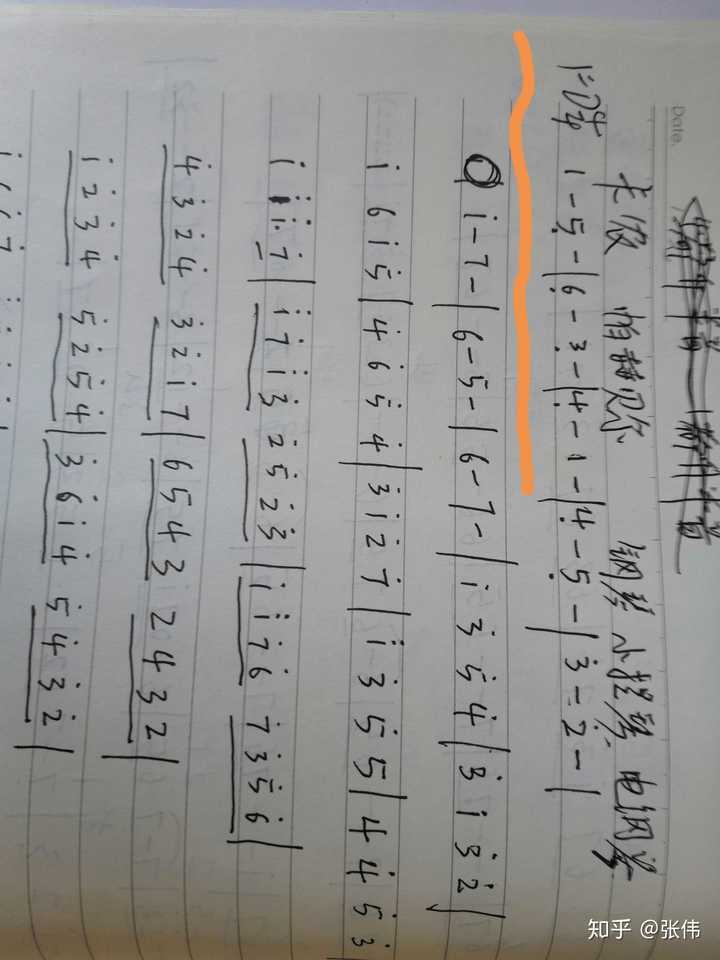 Date.
卡农 帕赫贝尔 钢琴 小提琴 电钢琴
1 - 5̣ - | 6̣ - 3̣ - | 4̣ - 1 - | 4̣ - 5̣ - | 3̇ - 2̇ - |
i - 7 - | 6 - 5 - | 6 - 7 - | i 3 5 4 | 3 i 3 2 |
i 6 i 5 | 4 6 5 4 | 3 i 2 7 | i 3 5 5 | 4 4 5 3
i i i. 7 | i 7 i 3 2 5 2 3 | i i 7 6 7 3 5 6 |
4 3 2 4 3 2 i 7 | 6 5 4 3 2 4 3 2 |
i 2 3 4 5 2 5 4 | 3 6 i 4 5 4 3 2 |
知乎 @张伟